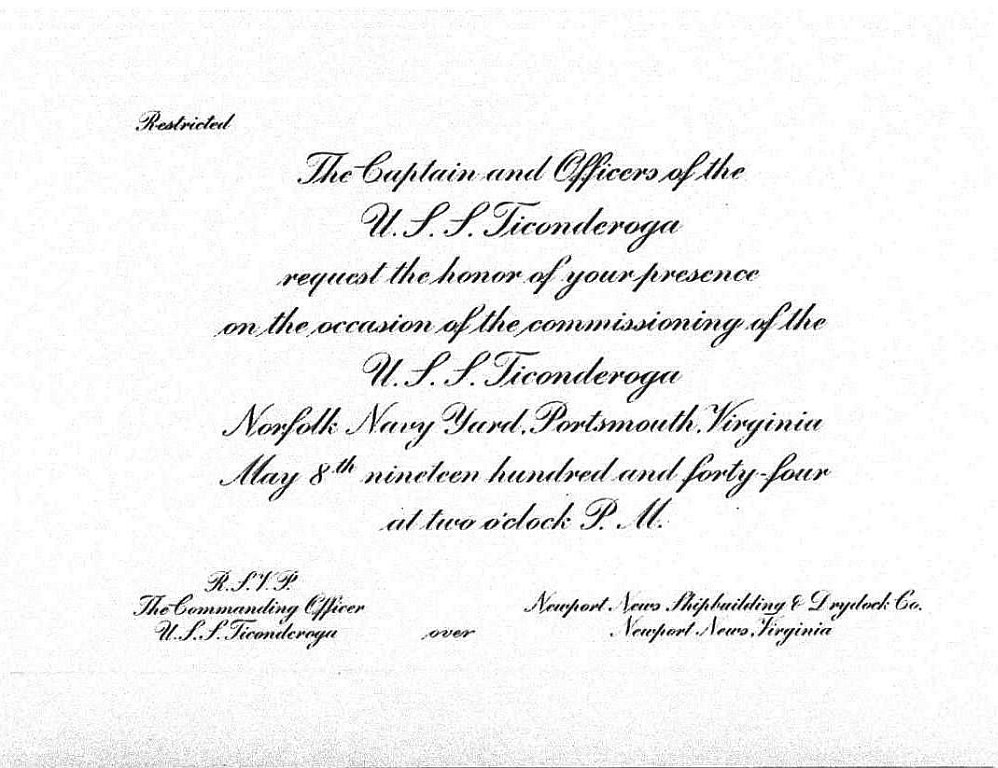 Restricted
The Captain and Officers of the
U.S.S. Ticonderoga
request the honor of your presence
on the occasion of the commissioning of the
U.S.S. Ticonderoga
Norfolk Navy Yard, Portsmouth, Virginia
May 8th nineteen hundred and forty-four
at two o'clock P. M.
R.S.V.P.
The Commanding Officer
U.S.S. Ticonderoga
over
Newport News Shipbuilding & Drydock Co.
Newport News, Virginia